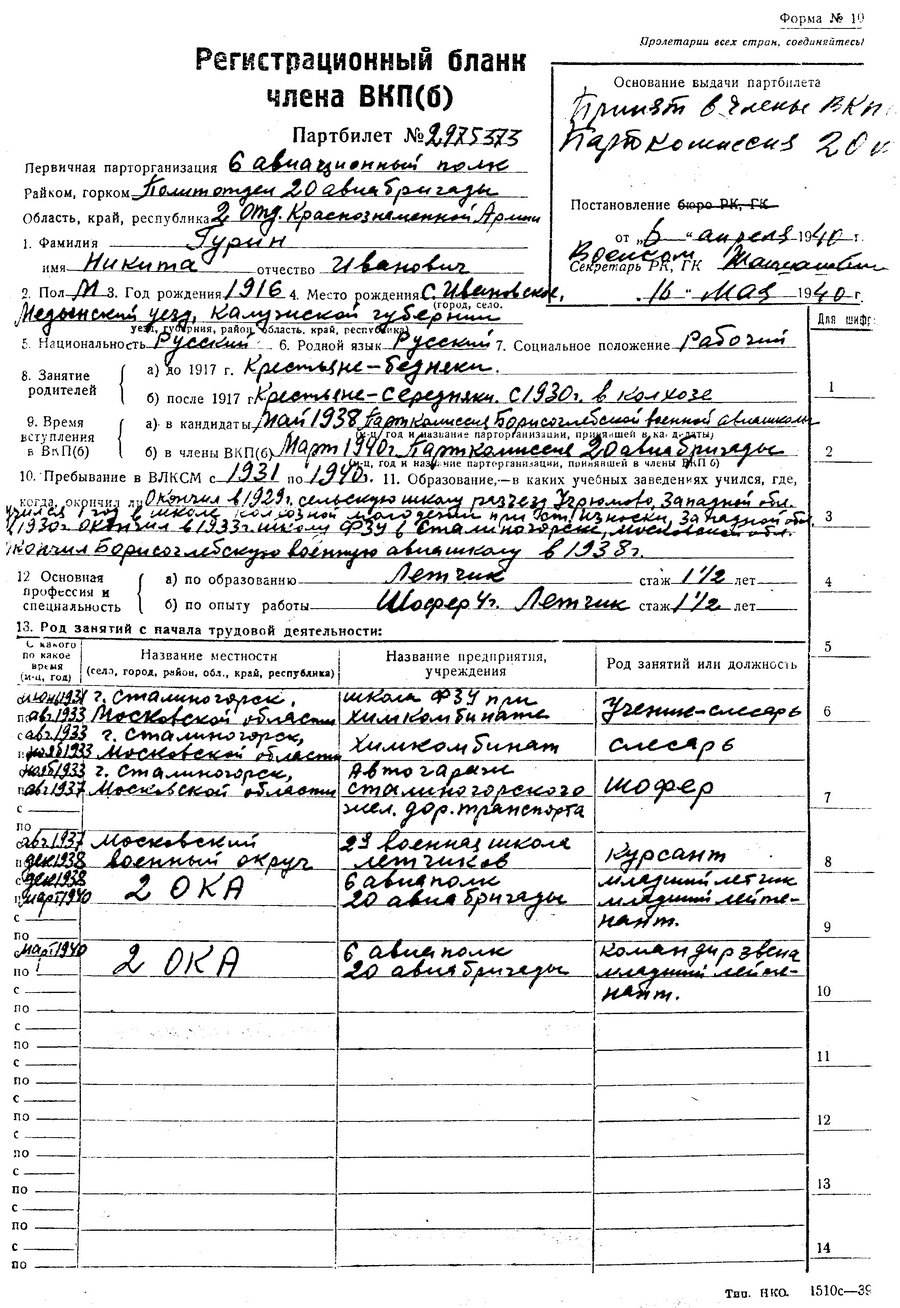 Форма № 10
Пролетарии всех стран, соединяйтесь!
Регистрационный бланк
члена ВКП(б)
Партбилет № 2975373
Основание выдачи партбилета
Принят в члены ВКП
Парткомиссия 20
Первичная парторганизация 6 авиационный полк
Райком, горком Политотдел 20 авиабригады
Область, край, республика 2 Отд. Краснознаменной Армии
Постановление бюро РК, ГК
от „6“ апреля 1940 г.
Военком
Секретарь РК, ГК
„16“ Мая 1940 г.
1. Фамилия Гурин
имя Никита отчество Иванович
2. Пол М 3. Год рождения 1916 4. Место рождения С. Ивановское,
(город, село.
Медынский уезд, Калужской губернии
уезд, губерния, район, область, край, республика)
Для шифр
5. Национальность Русский 6. Родной язык Русский 7. Социальное положение Рабочий
8. Занятие родителей
а) до 1917 г. Крестьяне-бедняки.
б) после 1917 г. Крестьяне-середняки. С 1930г. в колхозе
1
9. Время вступления в ВКП(б)
а) в кандидаты Май 1938 Парткомиссия Борисоглебской военной авиашколы
(м-ц, год и название парторганизации, принявшей в кандидаты)
б) в члены ВКП(б) Март 1940г Парткомиссия 20 авиабригады
(м-ц, год и название парторганизации, принявшей в члены ВКП б)
2
10. Пребывание в ВЛКСМ с 1931 по 1940г. 11. Образование,—в каких учебных заведениях учился, где,
когда, окончил ли Окончил в 1929г. сельскую школу разъезд Угрюмово, Западной обл.
учился 1 год в школе колхозной молодежи при ст. Износки, Западной обл.
1930г. Окончил в 1933г. школу ФЗУ в Сталиногорске, Московской обл.
3
окончил Борисоглебскую военную авиашколу в 1938г.
12 Основная профессия и специальность
а) по образованию Летчик стаж 1 1/2 лет
б) по опыту работы Шофер 4г. Летчик стаж 1 1/2 лет
4
13. Род занятий с начала трудовой деятельности:
5
С какого по какое время (м-ц, год)
Название местности
(село, город, район, обл., край, республика)
Название предприятия, учреждения
Род занятий или должность
с июн 1931 г. Сталиногорск, школа ФЗУ при
по авг 1933 Московской области химкомбинате Ученик-слесарь
6
с авг 1933 г. Сталиногорск,
по нояб 1933 Московской области Химкомбинат слесарь
с нояб 1933 г. Сталиногорск, Автогараж
по авг 1937 Московской области сталиногорского шофер
7
с жел. дор. транспорта
по
с авг 1937 Московский 2я военная школа
по дек 1938 военный округ летчиков Курсант
8
с дек 1938 2 ОКА 6 авиаполк младший летчик
по март 1940 20 авиабригады младший лейте-
с нант.
9
по
с март 1940 2 ОКА 6 авиаполк командир звена
по 20 авиабригады младший лейте-
с нант.
10
по
с
по
с
11
по
с
по
с
12
по
с
по
с
13
по
с
по
с
14
по
Тип. НКО. 1510с—39